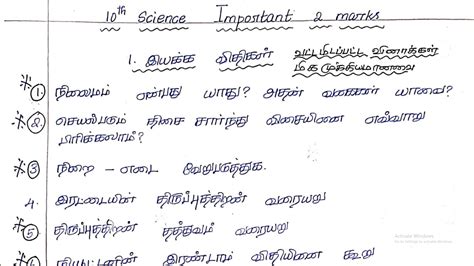 10th Science Important 2 marks
1. இயக்க விதிகள் வட்டமிடப்பட்ட வினாக்கள்
மிக முக்கியமானவை
① நிலைமம் என்பது யாது? அதன் வகைகள் யாவை?
② செயல்படும் திசை சார்ந்து விசையினை எவ்வாறு
பிரிக்கலாம்?
③ நிறை – எடை வேறுபடுத்துக.
4. இரட்டையின் திருப்புத்திறன் வரையறு
⑤ திருப்புத்திறன் தத்துவம் வரையறு
நியூட்டனின் இரண்டாம் விதியினை கூறு
Activate Windows